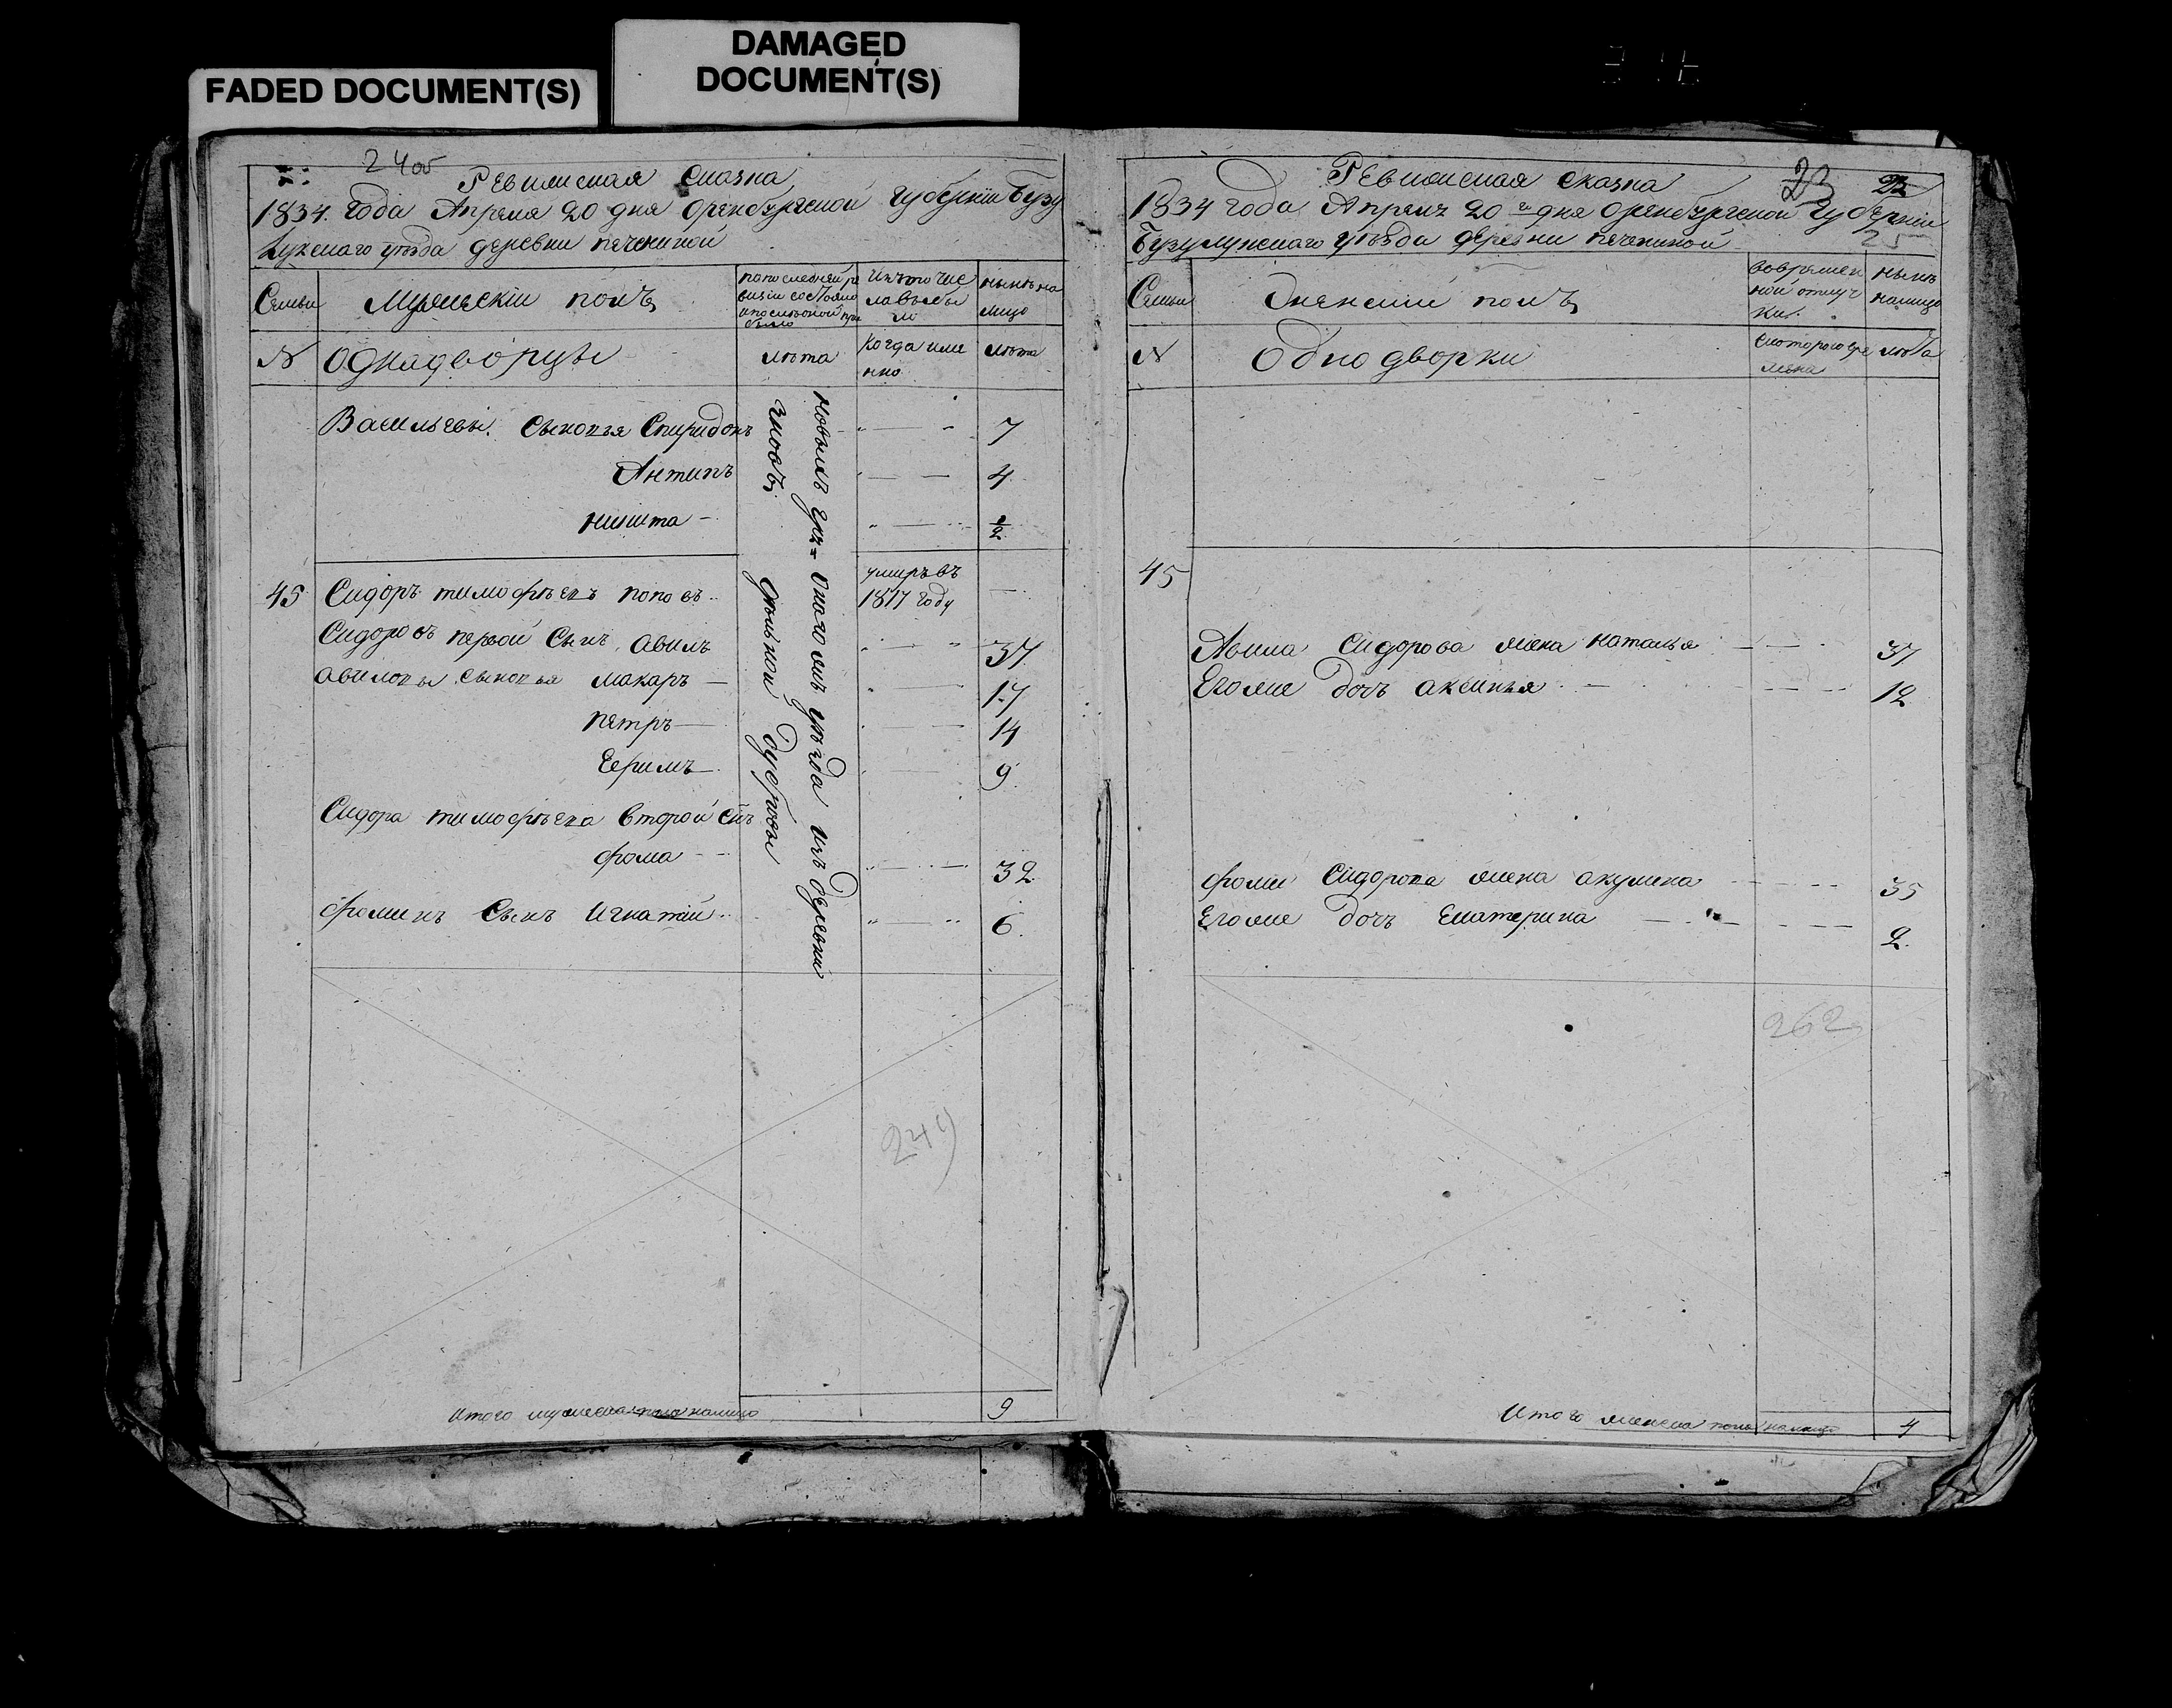 FADED DOCUMENT(S)
DAMAGED
DOCUMENT(S)
Ревижская сказка
1834. года Апреля 20 дня Оренбургской губернiи Бузу
лукскаго уѣзда деревни печениной
Семьи
Мужескiй полъ
попоследней ре
визiи состояло
ипослѣоной при
было
Изътого чис
ла выбы
ло
нынѣ на
лицо
№
Однадворцы
лѣта
Когда име
нно
лѣта
Васильевы. Сыновья Спиридонъ
7
Антипъ
4
никита
1/2
45
Сидоръ тимофѣевъ поповъ
умиръ въ
1817 году
Сидоровъ первой Сынъ Авилъ
37
Авиловы сыновья макаръ
17
петръ
14
Ефимъ
9
Сидора тимофѣева второй сынъ
фома
32
фоминъ Сынъ Игнатiй
6
249
Итого мужеска пола налицо
9
23
25
Ревижская сказка
1834 года Апреля 20 го дня Оренбургской Губернiи
Бузулукскаго уѣзда деревни печениной
Семьи
Женскiй полъ
вовремен
ной отлуч
ки.
нынѣ
налицо
№
Однодворки
скоторого вре
мени
лѣта
45
Авила Сидорова жена наталья
37
Егоже дочь аксинья
12
фомы Сидорова жена акулина
35
Егоже дочь Екатерина
2
262
Итого женска пола налицо
4